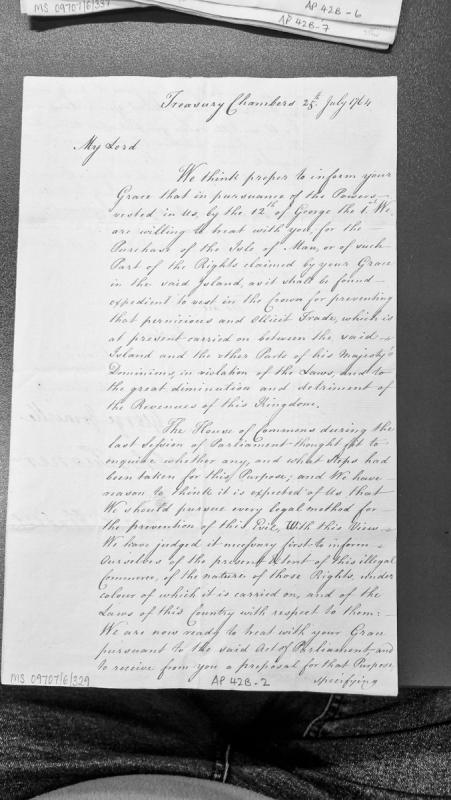 MS 09707/6/337
AP 42B-6
AP 42B-7
Treasury Chambers 25th July 1764
My Lord
We think proper to inform your
Grace that in pursuance of the Powers
vested in Us, by the 12th of George the 1st We
are willing to treat with you, for the
Purchase of the Isle of Man, or of such
Part of the Rights claimed by your Grace
in the said Island, as it shall be found
expedient to vest in the Crown for preventing
that pernicious and illicit Trade, which is
at present carried on between the said
Island and the other Parts of his Majesty's
Dominions, in violation of the Laws, and to
the great diminution and detriment of
the Revenues of this Kingdom.
The House of Commons during the
last Session of Parliament thought fit to
enquire whether any, and what Steps had
been taken for this Purpose; and We have
reason to think it is expected of Us that
We should pursue every legal method for
the prevention of this Evil. With this View
We have judged it necessary first to inform
Ourselves of the present extent of this illegal
Commerce, of the nature of those Rights, under
colour of which it is carried on, and of the
Laws of this Country with respect to them:
We are now ready to treat with your Grace
pursuant to the said Act of Parliament and
to receive from you a proposal for that Purpose
specifying
MS 09707/6/329
AP 42B-2